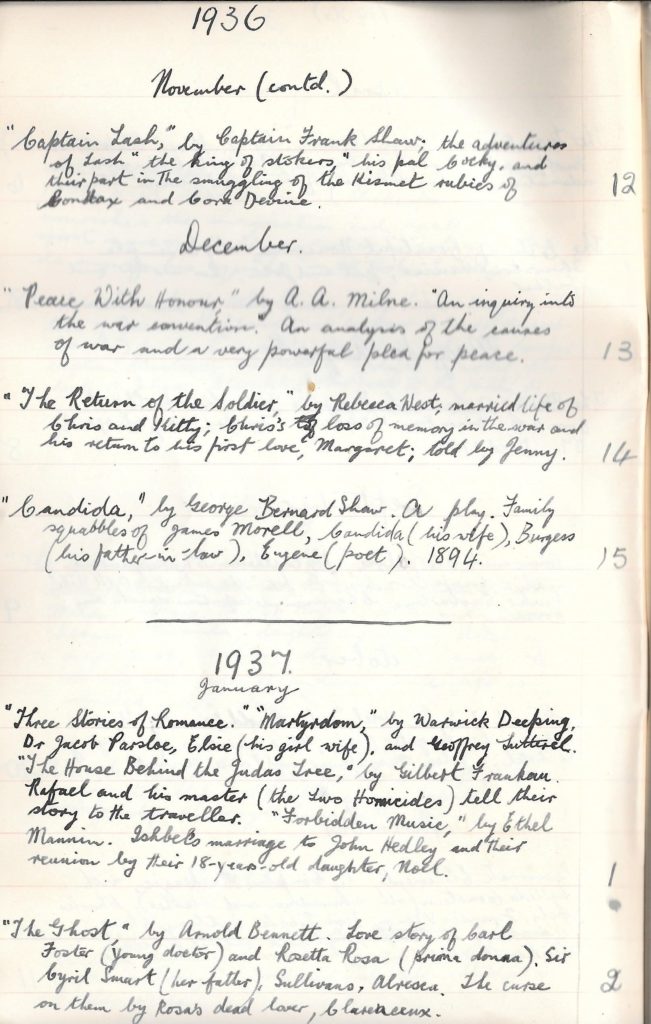 1936
November (contd.)
"Captain Lash," by Captain Frank Shaw; the adventures
of Lash "the king of stokers," his pal Cocky, and
their part in The smuggling of the Kismet rubies of
Condax and Cora Devine. 12
December.
"Peace With Honour," by A. A. Milne. "An inquiry into
the war convention." An analysis of the causes
of war and a very powerful plea for peace. 13
"The Return of the Soldier," by Rebecca West; married life of
Chris and Kitty; Chris's loss of memory in the war and
his return to his first love, Margaret; told by Jenny. 14
"Candida," by George Bernard Shaw. A play. Family
squabbles of James Morell, Candida (his wife), Burgess
(his father-in-law), Eugene (poet). 1894. 15
1937.
January
"Three Stories of Romance." "Martyrdom," by Warwick Deeping.
Dr Jacob Parsloe, Elsie (his girl wife), and Geoffrey Lutterel.
"The House Behind the Judas Tree," by Gilbert Frankau.
Rafael and his master (the Two Homicides) tell their
story to the traveller. "Forbidden Music," by Ethel
Mannin. Ishbel's marriage to John Hedley and their
reunion by their 18-years-old daughter, Noel. 1
"The Ghost" by Arnold Bennett. Love story of Carl
Foster (young doctor) and Rosetta Rosa (prima donna). Sir
Cyril Smart (her father), Sullivans, Alresca. The curse 2
on them by Rosa's dead lover, Clarenceux.